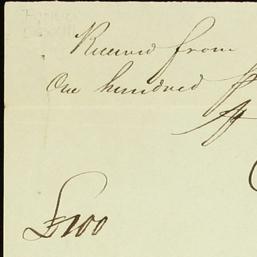 Received from
One hundred
£100